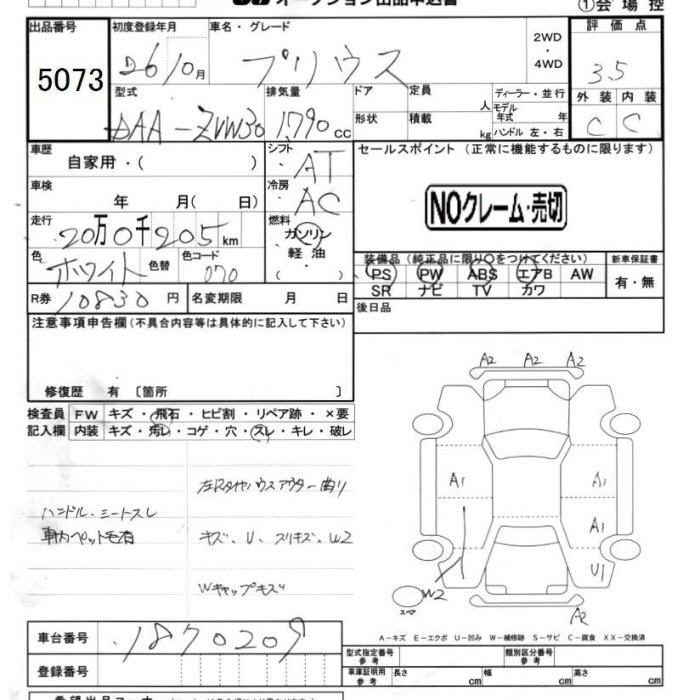 オークション出品申込書
①会場控
出品番号 初度登録年月 車名・グレード 評価点
5073 26/10月 プリウス 2WD・4WD 3.5
型式 排気量 ドア 定員 人 ディーラー・並行 外装 内装
DAA-ZVW30 1790cc 形状 積載 kg モデル年式 年 ハンドル 左・右 C C
車歴 自家用・( ) シフト AT セールスポイント (正常に機能するものに限ります)
車検 年 月( 日) 冷房 AC
NOクレーム・売切
走行 20万0千205km 燃料 ガソリン・軽油・( )
色 ホワイト 色替 色コード 070
装備品 (純正品に限り○をつけてください) 新車保証書
PS PW ABS エアB AW 有・無
SR ナビ TV カワ
R券 10830円 名変期限 月 日 後日品
注意事項申告欄(不具合内容等は具体的に記入して下さい)
修復歴 有 〔箇所 〕
検査員 FW キズ・飛石・ヒビ割・リペア跡・×要
記入欄 内装 キズ・汚レ・コゲ・穴・スレ・キレ・破レ
A2 A2 A2
A1 A1
A1
U1
W2
スペア
A2
ハンドル、シートスレ
車内ペット毛有
左リタイヤハウスアウター曲リ
キズ、U、スリキズ、W2
Wキャップキズ
A-キズ E-エクボ U-凹み W-補修跡 S-サビ C-腐食 XX-交換済
車台番号 1870209
型式指定番号 参考 類別区分番号 参考
登録番号 車庫証明用 参考 長さ cm 幅 cm 高さ cm
希望出品コーナー